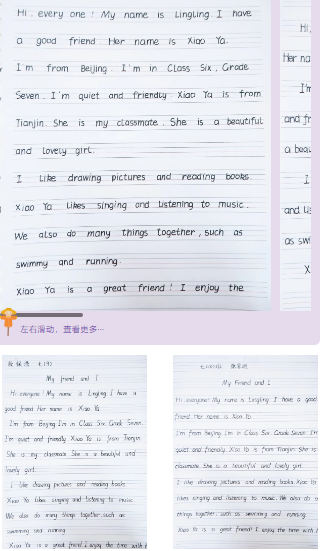 Hi, every one! My name is Lingling I have
a good friend Her name is Xiao Ya.
I'm from Beijing. I'm in Class Six, Grade
Seven. I'm quiet and friendly Xiao Ya is from
Tianjin. She is my classmate. She is a beautiful
and lovely girl.
I like drawing pictures and reading books.
Xiao Ya likes singing and listening to music.
We also do many things together, such as
swimmy and running.
Xiao Ya is a great friend! I enjoy the
Hi,
Her na
I'm
and fr
a beau
I
and lis
as swi
X
左右滑动，查看更多...
My friend and I
Hi everyone! My name is Lingling I have a
good friend Her name is Xiao Ya
I'm from Beijing I'm in Class Six Grade Seven.
I'm quiet and friendly Xiao Ya is from Tianjin
She is my classmate She is a beautiful and
lovely girl.
I like drawing pictures and reading books
Xiao Ya likes singing and listening to music
We also do many things together such as
swimming and running
Xiao Ya is a great friend I enjoy the time with
My Friend and I
Hi everyone! My name is Lingling I have a good
friend Her name is Xiao Ya
I'm from Beijing I'm in Class Six Grade Seven I'm
quiet and friendly Xiao Ya is from Tianjin She is
classmate She is a beautiful and lovely girl
I like drawing pictures and reading books Xiao Ya
likes singing and listening to music. We also do m
things together such as swimming and running
Xiao Ya is a great friend! I enjoy the time with